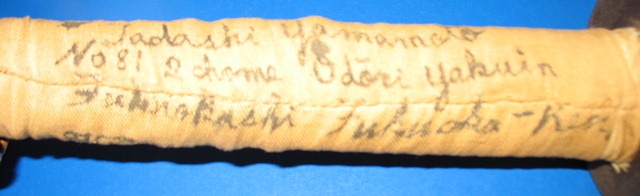 Tadashi Yamamoto
No 81 2 chome Ōdōri Yakuin
Fukuokashi Fukuoka-Ken